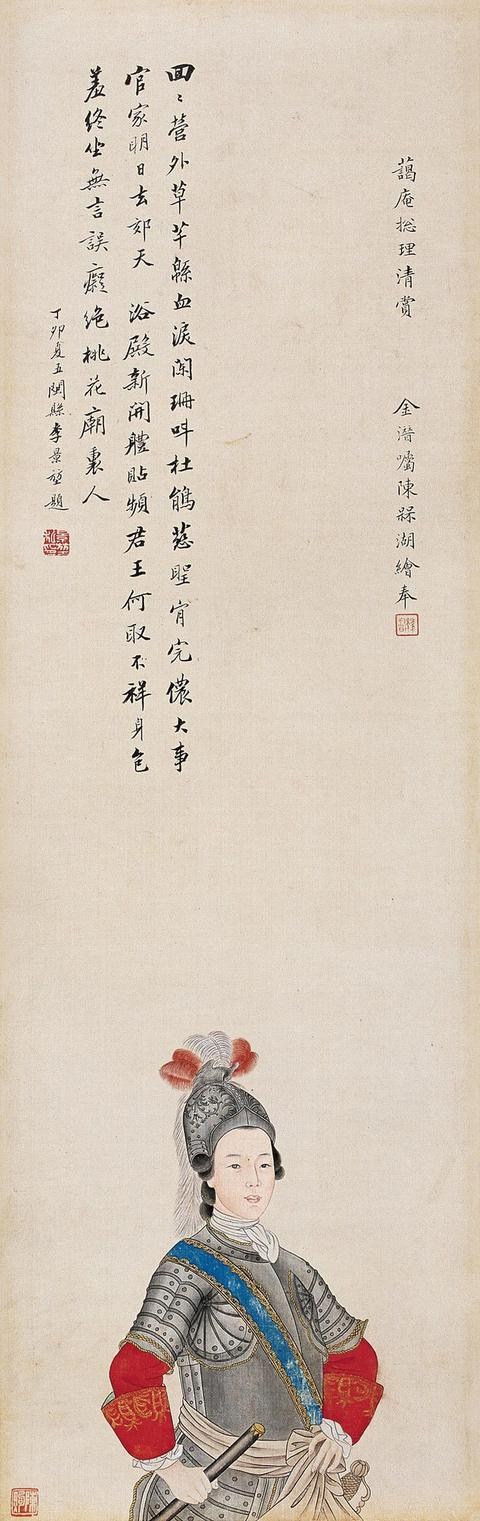 藹庵総理清賞 金潛囑陳槑湖繪奉
回〻營外草芊緜血淚闌珊呌杜鵑慈聖肎完儂大事
官家明日去郊天 浴殿新開體貼頻君王何取不祥身包
羞終坐無言誤癡絕桃花廟裏人
丁卯夏五閩縣李景堃題